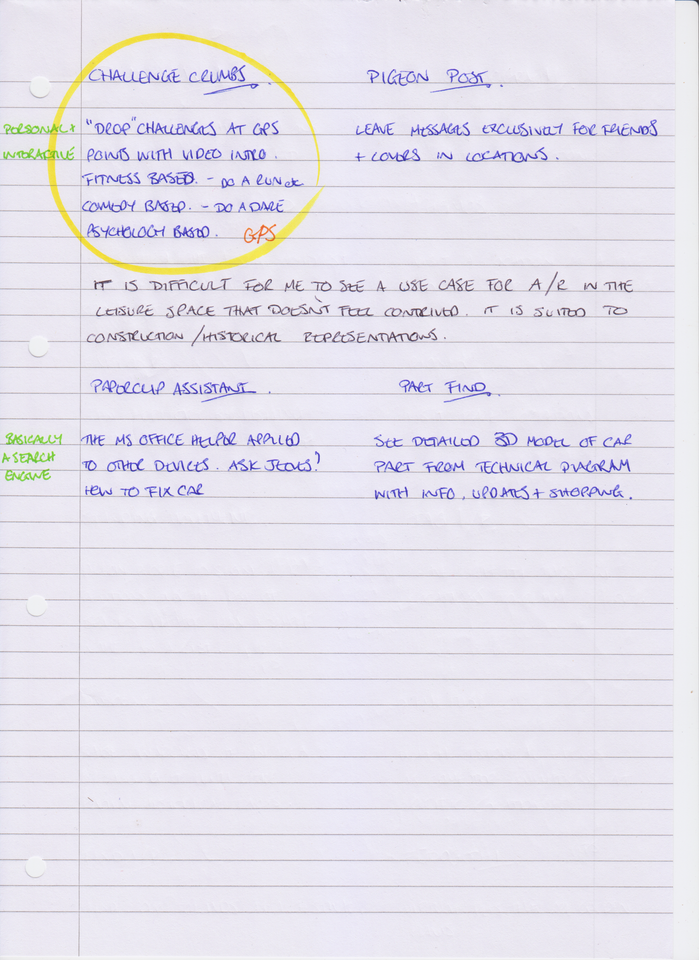 CHALLENGE CRUMBS.
PERSONAL +
INTERACTIVE
"DROP" CHALLENGES AT GPS
POINTS WITH VIDEO INTRO.
FITNESS BASED. - DO A RUN
COMEDY BASED. - DO A DARE
PSYCHOLOGY BASED. GPS
PIGEON POST.
LEAVE MESSAGES EXCLUSIVELY FOR FRIENDS
+ LOVERS IN LOCATIONS.
IT IS DIFFICULT FOR ME TO SEE A USE CASE FOR A/R IN THE
LEISURE SPACE THAT DOESN'T FEEL CONTRIVED. IT IS SUITED TO
CONSTRUCTION/HISTORICAL REPRESENTATIONS.
PAPERCLIP ASSISTANT.
BASICALLY
A SEARCH
ENGINE
THE MS OFFICE HELPER APPLIED
TO OTHER DEVICES. ASK JEEVES?
HOW TO FIX CAR
PART FIND.
SEE DETAILED 3D MODEL OF CAR
PART FROM TECHNICAL DIAGRAM
WITH INFO, UPDATES + SHOPPING.